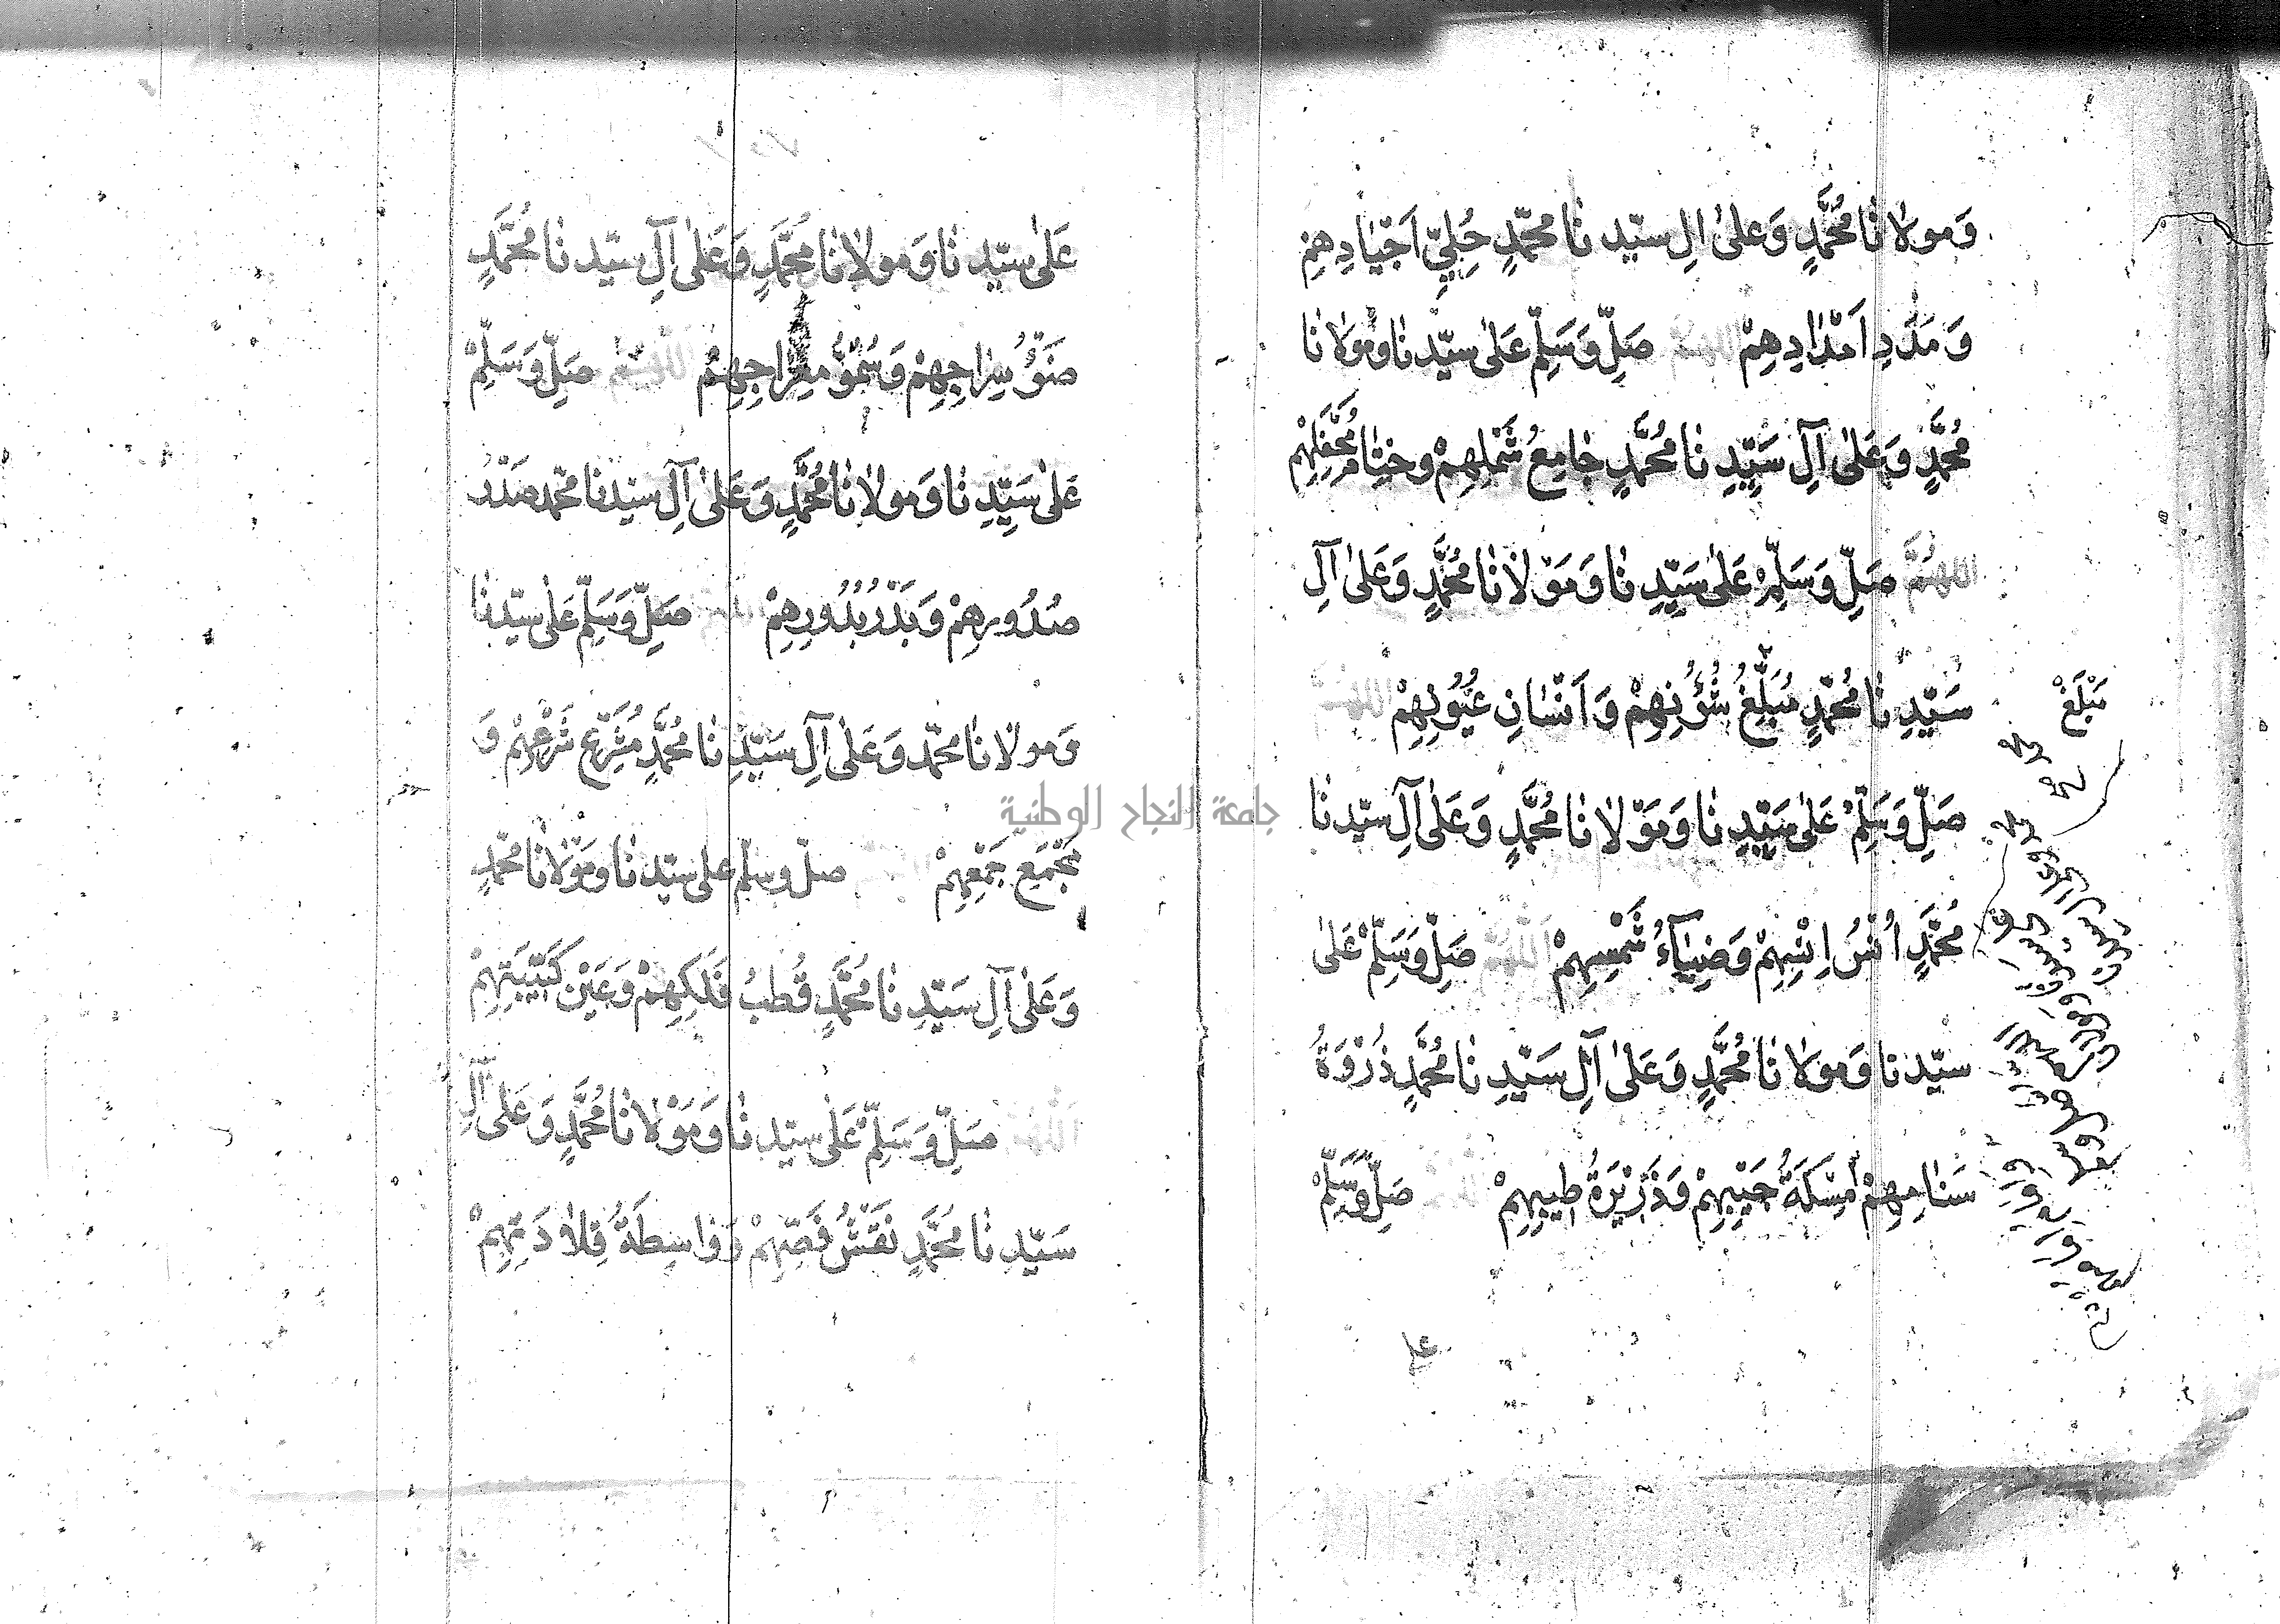 وَمولَانَا مُحَمَّدٍ وَعَلىٰ اٰلِ سيّدِنَا محمّدٍ حُلِيِّ اَجْيَادِهِمْ
وَمَدَدِ اَمْدَادِهِمْ اللهم صَلِّ وَسَلِّمْ عَلىٰ سيّدِنَا وَمَوْلَانَا
مُحَمَّدٍ وَعَلىٰ اٰلِ سَيِّدِنَا مُحَمَّدٍ جَامِعُ شَمْلِهِمْ وَخِتَامُ مَحْفِلِهِمْ
اللهُمَّ صَلِّ وَسَلِّمْ عَلىٰ سَيِّدِنَا وَمَوْلَانَا مُحَمَّدٍ وَعَلىٰ اٰلِ
سَيِّدِنَا مُحَمَّدٍ مُبَلِّغُ شُؤُنِهِمْ وَاَنْسَانِ عُيُونِهِمْ اللهم
صَلِّ وَسَلِّمْ عَلىٰ سَيِّدِنَا وَمَوْلَانَا مُحَمَّدٍ وَعَلىٰ اٰلِ سيّدِنَا
مُحَمَّدٍ اُنْسُ اِنْسِهِمْ وَضِيَآءُ شَمْسِهِمْ اَللّٰهُمَّ صَلِّ وَسَلِّمْ عَلىٰ
سيّدِنَا وَمولَانَا مُحَمَّدٍ وَعَلىٰ اٰلِ سَيِّدِنَا مُحَمَّدٍ ذُرْوَةُ
سَنَامِهِمْ مِسْكَةُ جَيْبِهِمْ وَذَرِيْرَةُ طِيبِهِمْ صَلِّ وَسَلِّمْ
على
مَبْلَغْ
عَلىٰ سيّدِنَا وَمولَانَا مُحَمَّدٍ وَعَلىٰ اٰلِ سيّدِنَا مُحَمَّدٍ
ضَوْءُ سِرَاجِهِمْ وَسُمُوُّ مِعْرَاجِهِمْ اللهم صَلِّ وَسَلِّمْ
عَلىٰ سَيِّدِنَا وَمولَانَا مُحَمَّدٍ وَعَلىٰ اٰلِ سيدنا محمد صَدْرُ
صُدُورِهِمْ وَبَدْرُ بُدُورِهِمْ صَلِّ وَسَلِّمْ عَلىٰ سيّدِنَا
وَمولَانَا محمّد وَعَلىٰ اٰلِ سَيِّدِنَا مُحَمَّدٍ مُشَرِّعِ شَرْعِهِمْ وَ
مَجْمَعِ جَمْعِهِمْ صلّ وسلّم على سيّدِنَا وَمَوْلَانَا محمّدٍ
وَعَلىٰ اٰلِ سَيِّدِنَا مُحَمَّدٍ قُطْبُ فَلَكِهِمْ وَعَيْنِ كَتِيْبَتِهِمْ
اللهم صَلِّ وَسَلِّمْ عَلىٰ سيّدِنَا وَمَوْلَانَا مُحَمَّدٍ وَعَلىٰ اٰلِ
سَيِّدِنَا مُحَمَّدٍ نَقْشُ فَصِّهِمْ وَوَاسِطَةُ قِلَادَتِهِمْ
جامعة النجاح الوطنية